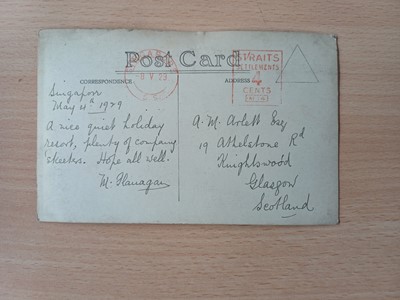 Post Card
CORRESPONDENCE
ADDRESS
8 V 29
STRAITS
SETTLEMENTS
4
CENTS
Singapore
May 11th 1929
A nice quiet holiday
resort, plenty of company
'skeeters. Hope all well.
M. Flanagan
A. M. Arlett Esq
19 Athelstane Rd
Knightswood
Glasgow
Scotland